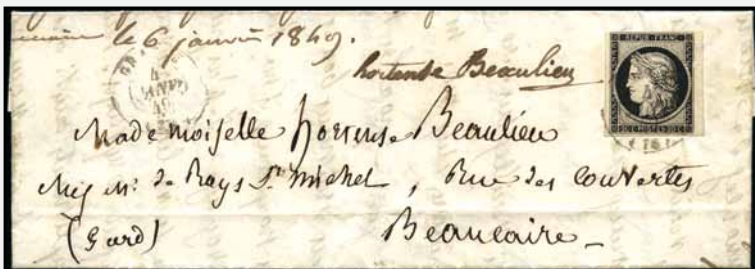 le 6 janvier 1849.
hortense Beaulieu
REPUB. FRANC.
20 C POSTES 20 C
JANV.
49
Mademoiselle hortense Beaulieu
de Rays St. Michel, Rue des Couvertes
(Gard) Beaucaire